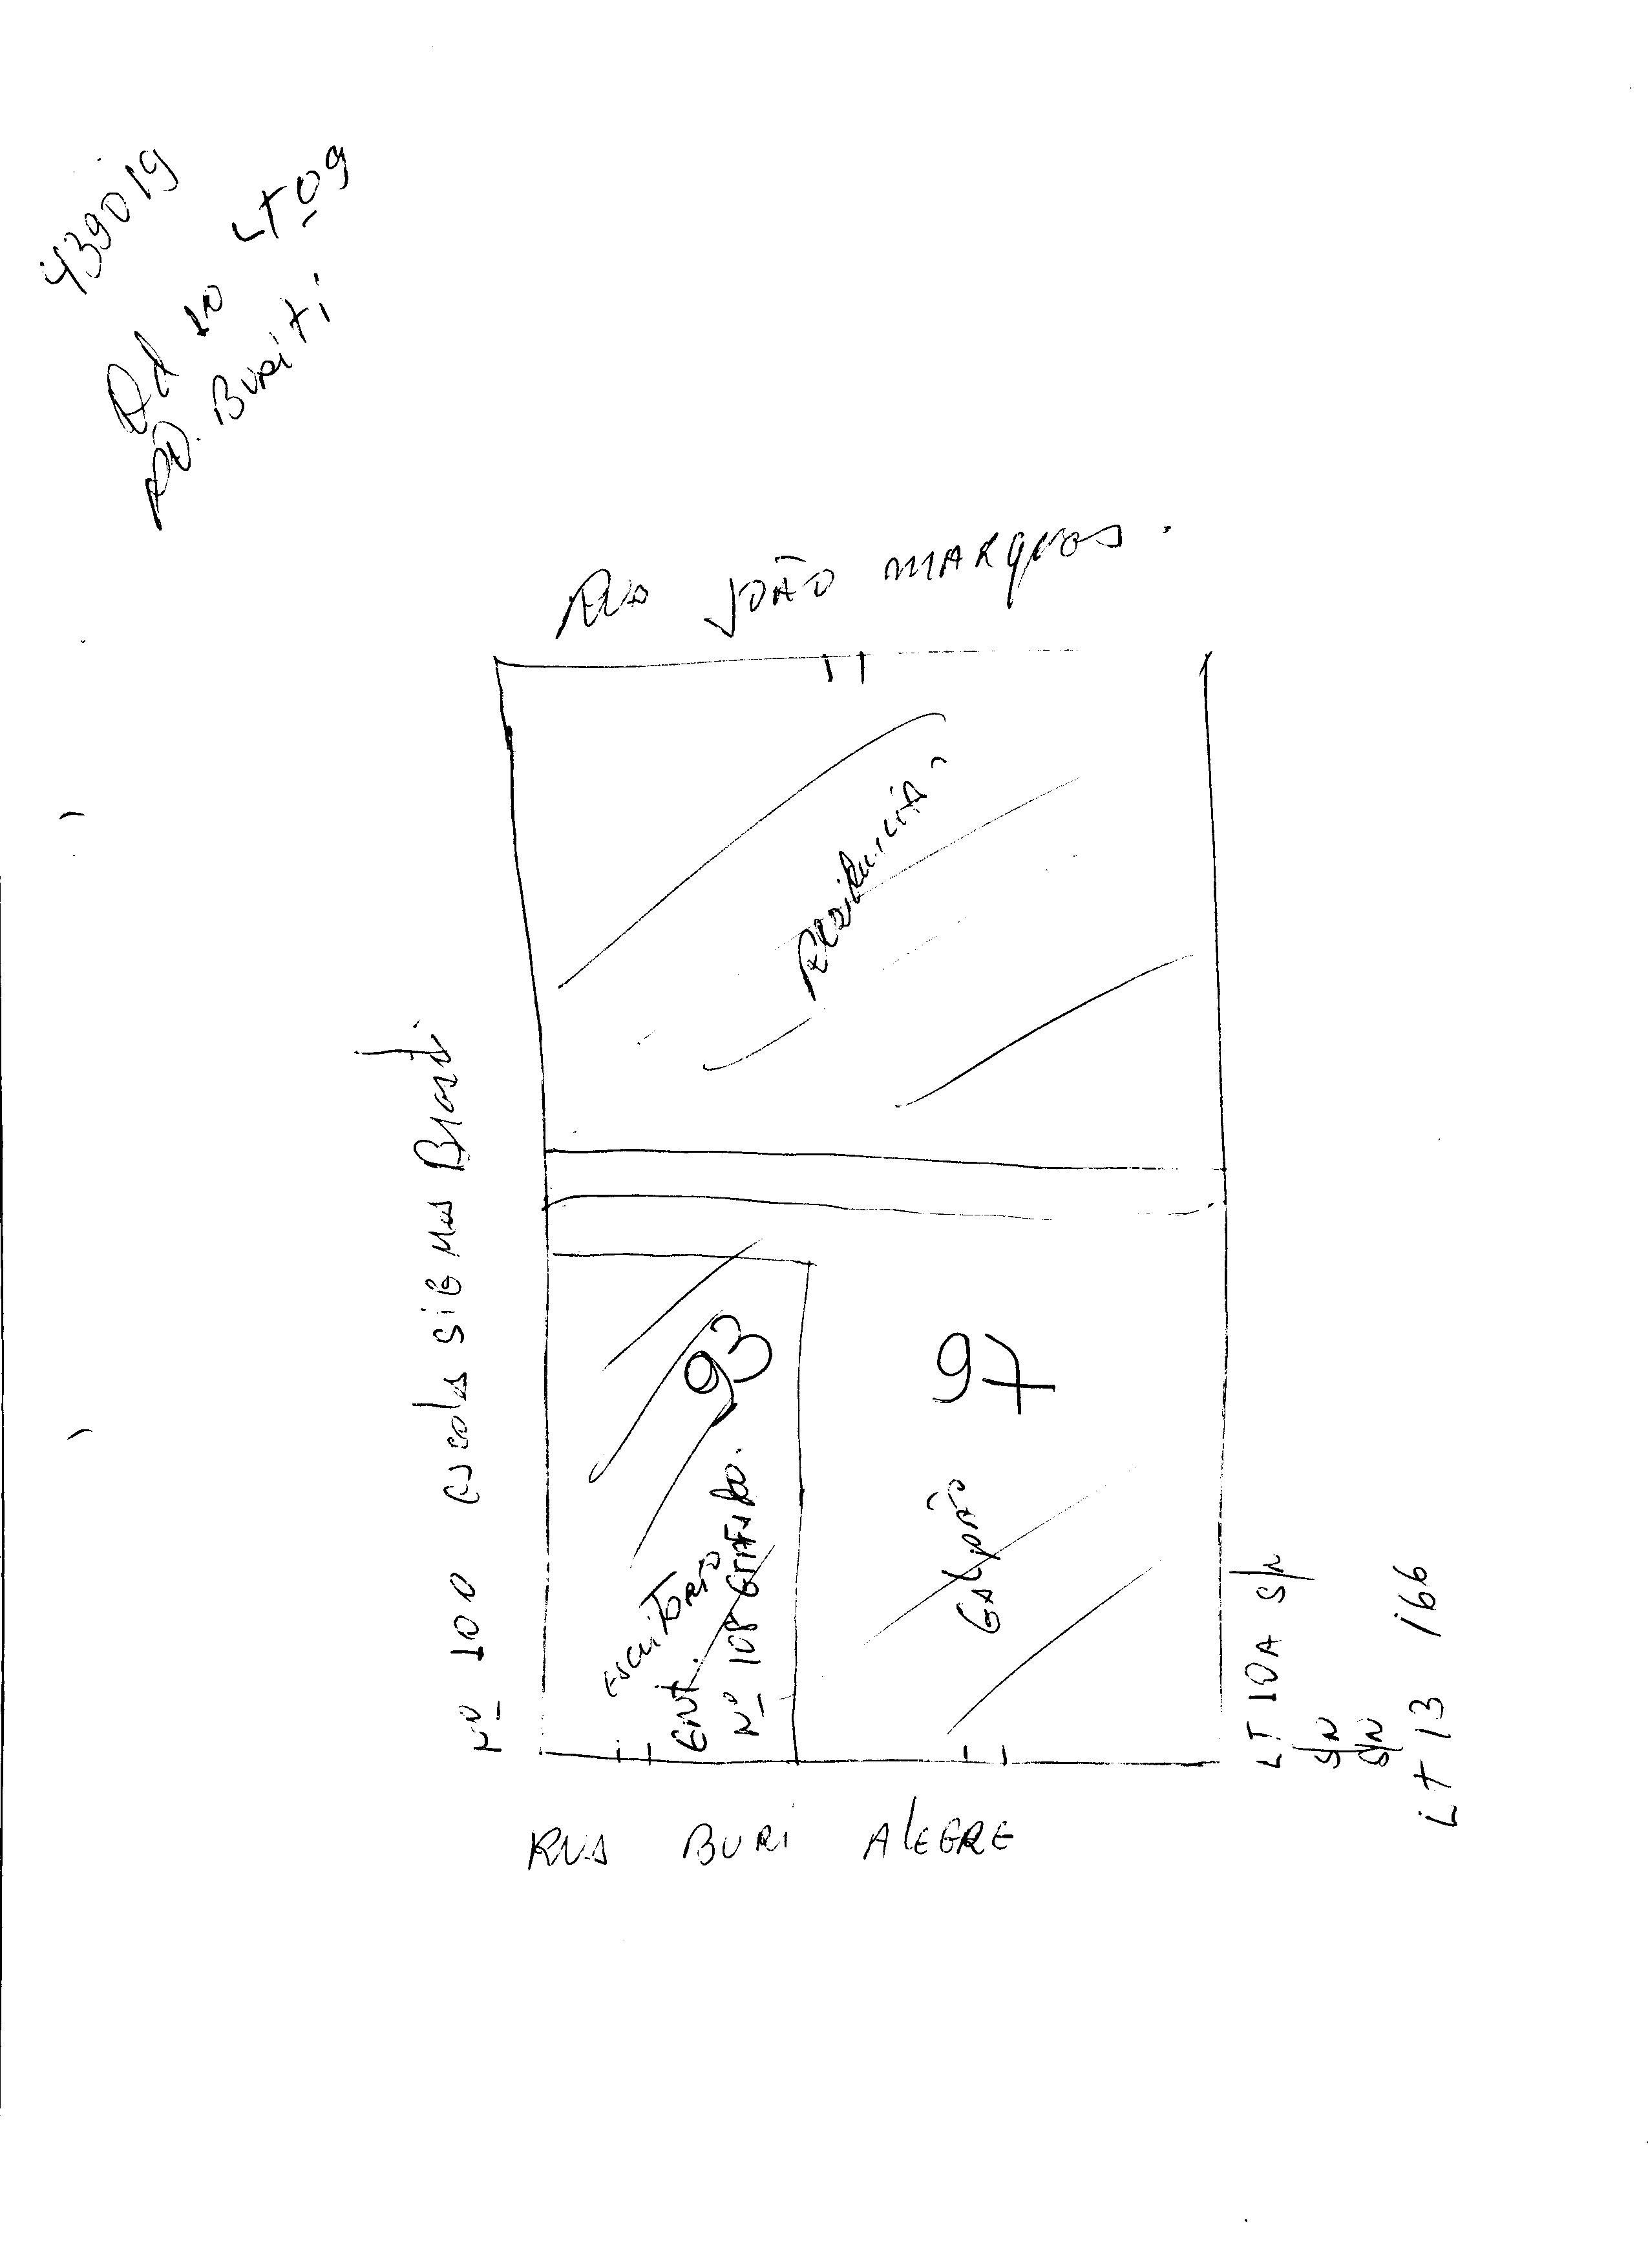 439019
Qd 10 LT 09
RD. BURiTi
RUA JOÃO MARQUES.
Nº 100 escola SiGMA
93
97
escriTORIO
ENT.
Nº 108 GRAFADO.
GALPÃO
LT 10A S/N
S/N
S/N
LT 13 166
RUA BURI ALEGRE